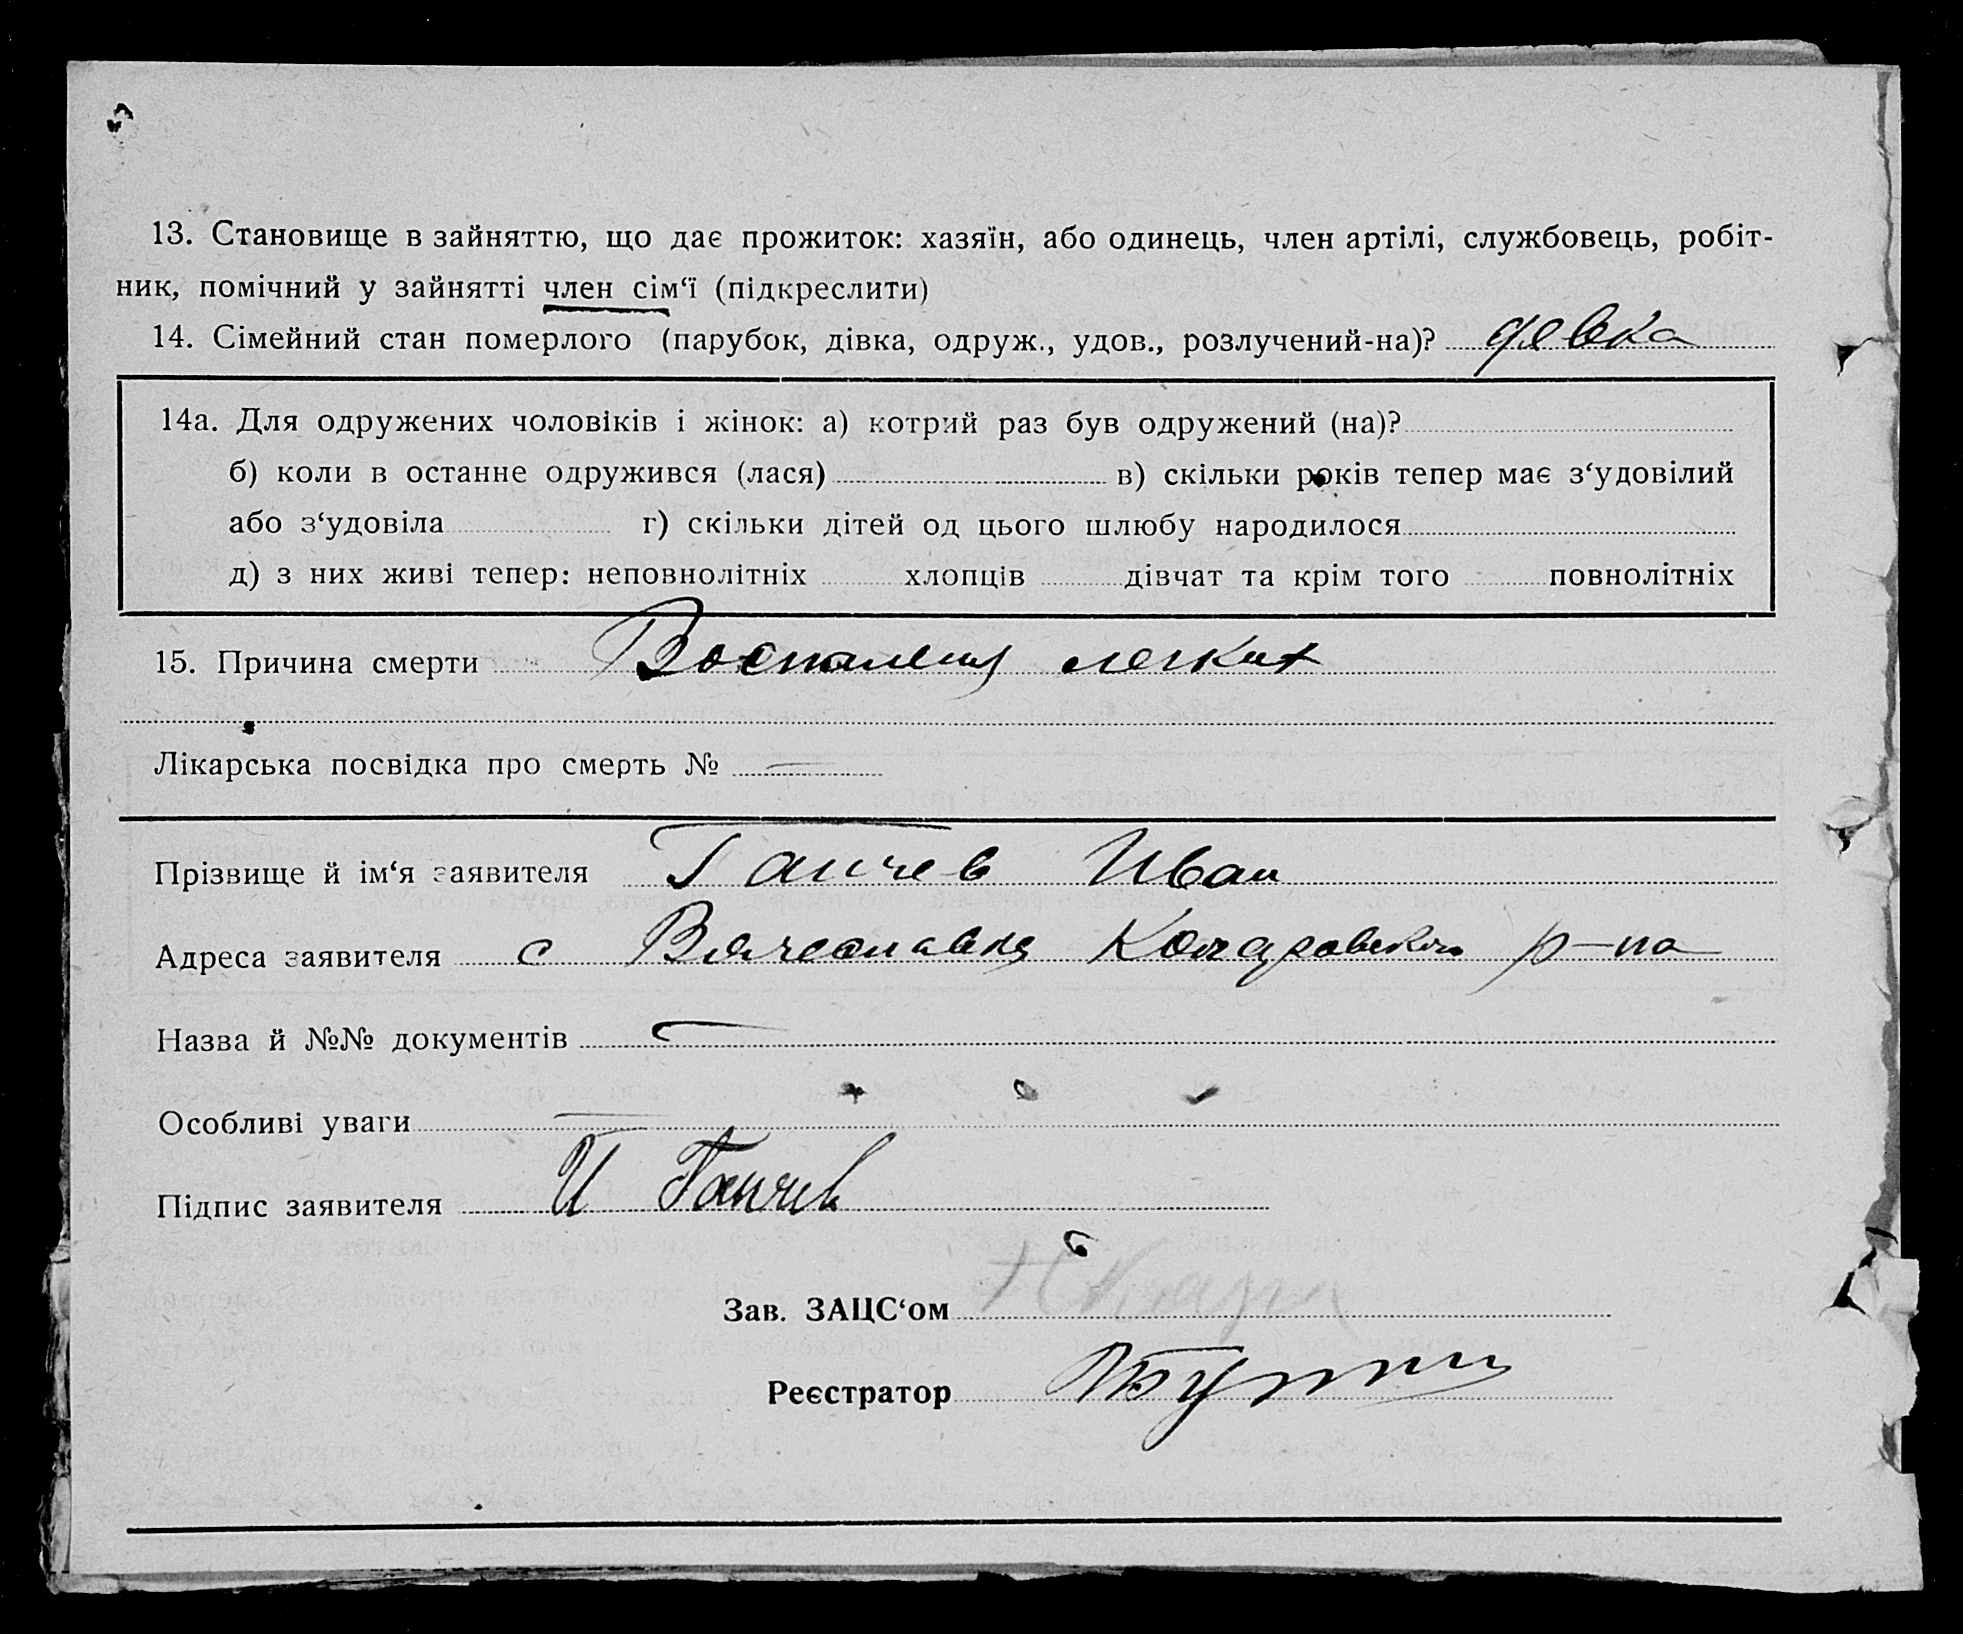 13. Становище в зайняттю, що дає прожиток: хазяїн, або одинець, член артілі, службовець, робіт-
ник, помічний у зайнятті член сім‘ї (підкреслити)
14. Сімейний стан померлого (парубок, дівка, одруж., удов., розлучений-на)? девка
14а. Для одружених чоловіків і жінок: а) котрий раз був одружений (на)?
б) коли в останне одружився (лася) в) скільки років тепер має з‘удовілий
або з‘удовіла г) скільки дітей од цього шлюбу народилося
д) з них живі тепер: неповнолітніх хлопців дівчат та крім того повнолітніх
15. Причина смерти Воспаления легких
Лікарська посвідка про смерть № —
Прізвище й ім‘я заявителя Ганчев Иван
Адреса заявителя с Вячеславка р-на
Назва й №№ документів —
Особливі уваги —
Підпис заявителя И Ганчев
Зав. ЗАЦС‘ом
Реєстратор